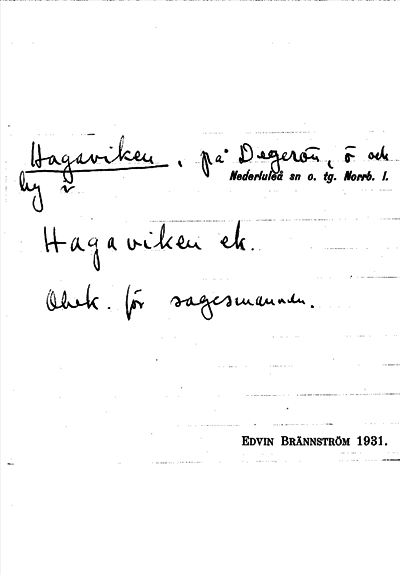 Hagaviken, på Degerön, ö och
by i
Nederluleå sn o. tg. Norrb. l.
Hagaviken ek.
Obek. för sagesmannen.
EDVIN BRÄNNSTRÖM 1931.